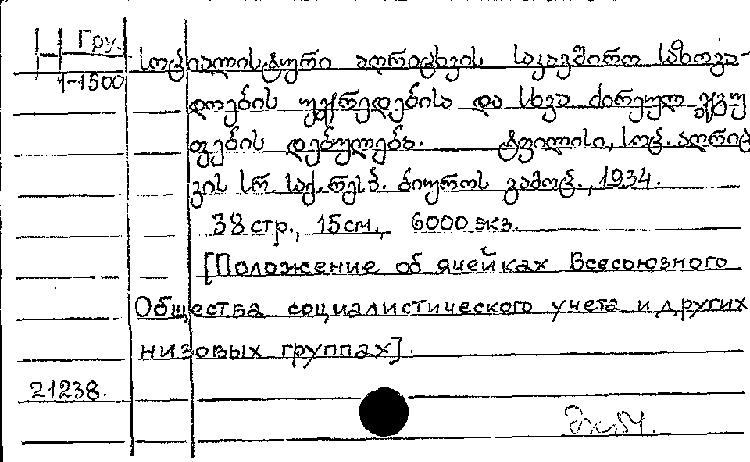 Гру.
1-1500
სოციალისტური აღრიცხვის საკავშირო საზოგა-
დოების უჯრედებისა და სხვა ძირეულ ჯგუ
ფების დებულება. ტფილისი, სოც. აღრიც
ვის სრ. საქ. რესპ. ბიუროს გამოც., 1934.
38 стр., 15 см., 6000 экз.
[Положение об ячейках Всесоюзного
Общества социалистического учета и других
низовых группах].
21238.